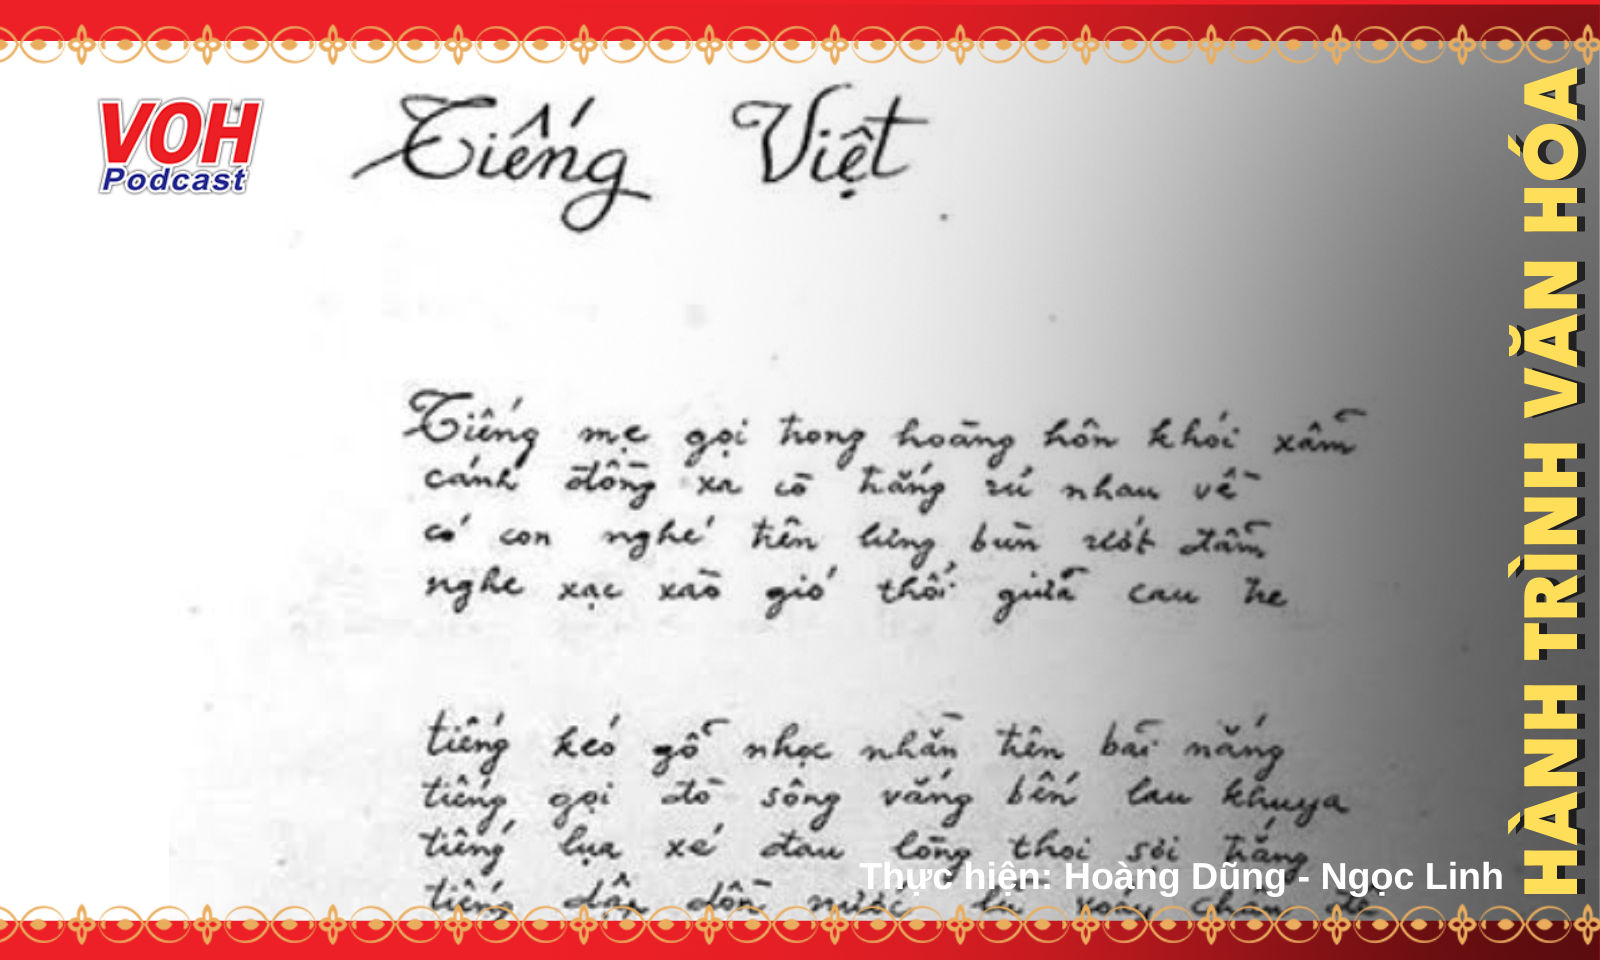 VOH
Podcast
Tiếng Việt
Tiếng mẹ gọi trong hoàng hôn khói xẫm
cánh đồng xa cò trắng rủ nhau về
có con nghé trên lưng bùn ướt đẫm
nghe xạc xào gió thổi giữa cau tre
tiếng kéo gỗ nhọc nhằn trên bãi nắng
tiếng gọi đò sông vắng bến lau khuya
tiếng lụa xé đau lòng thoi sợi trắng
tiếng dập dồn nước
Thực hiện: Hoàng Dũng - Ngọc Linh
HÀNH TRÌNH VĂN HÓA